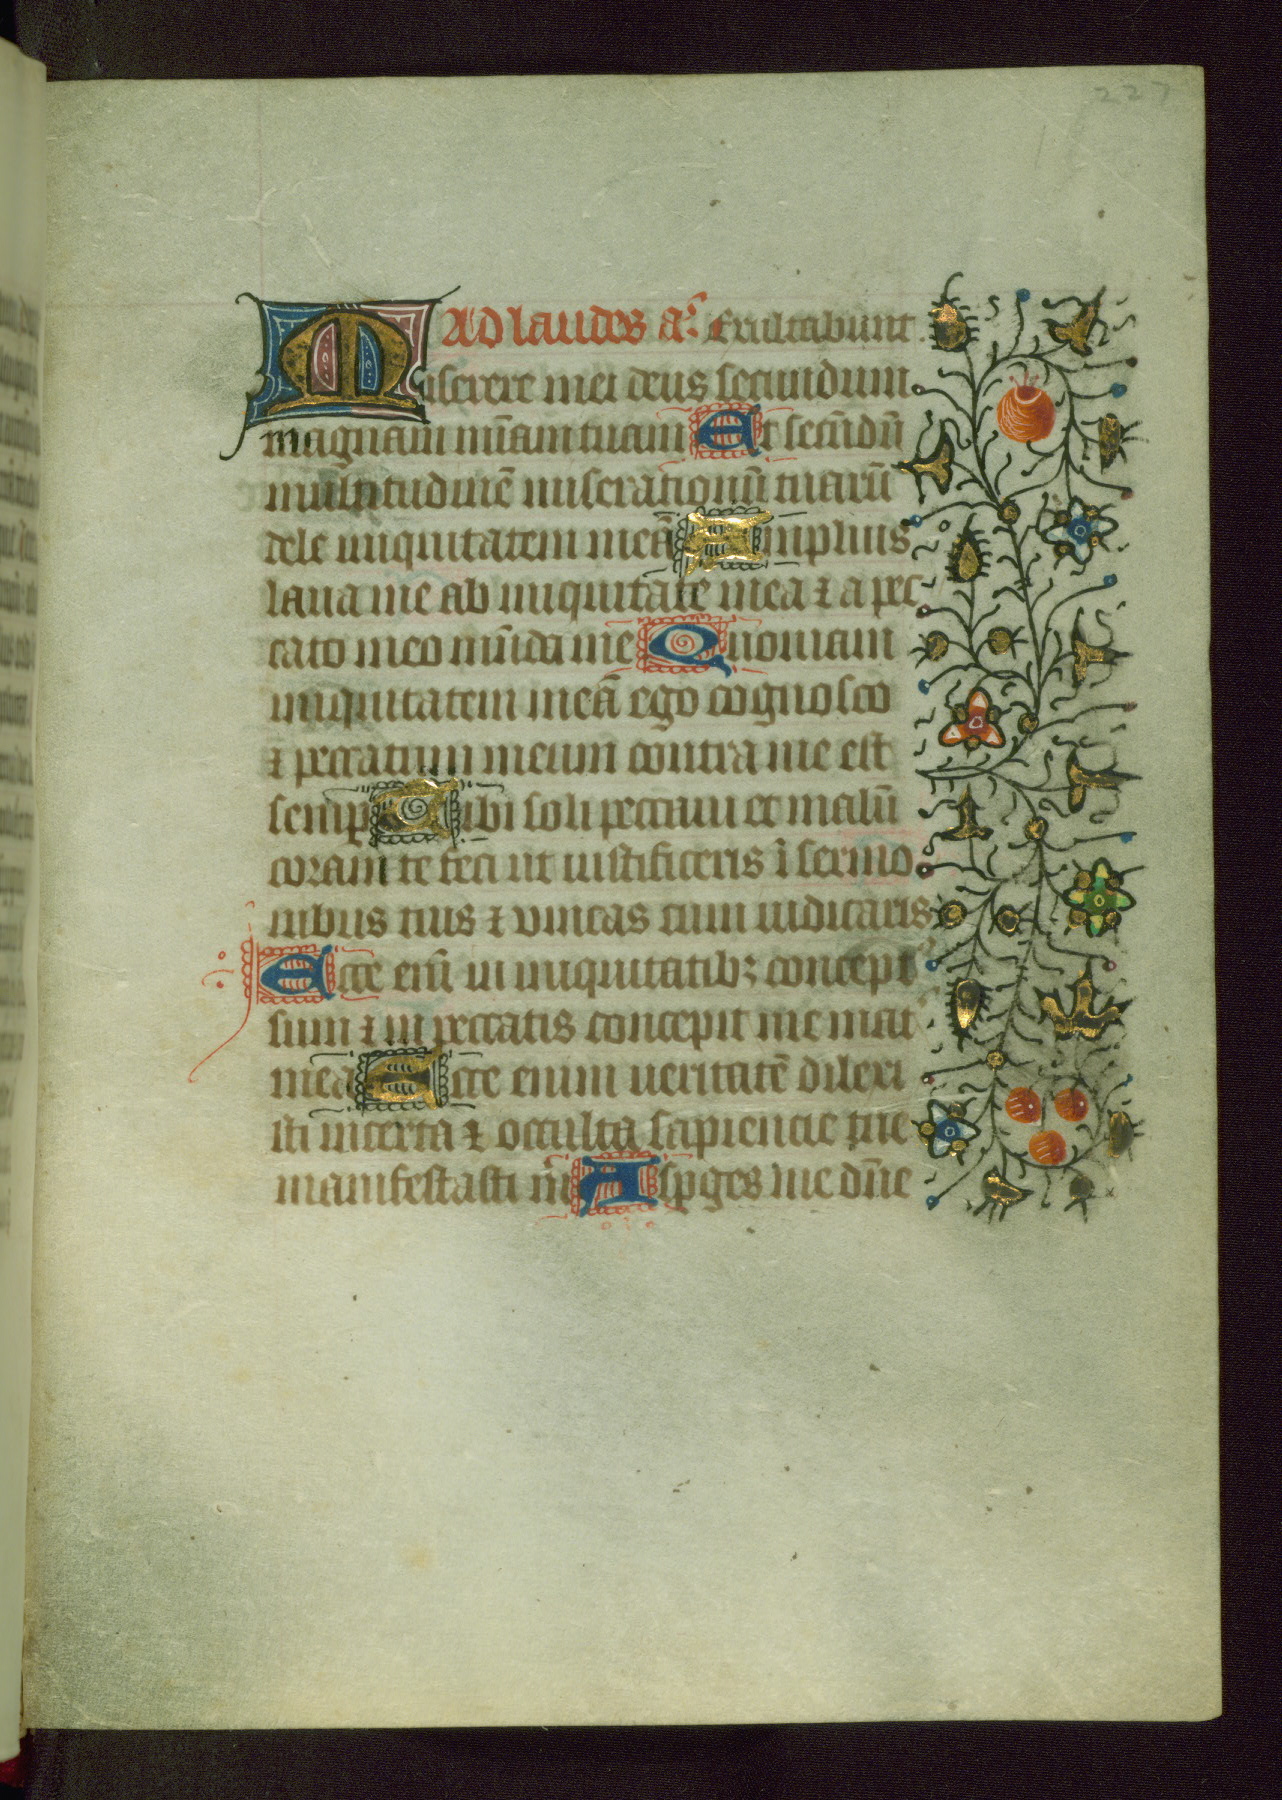 227
Ad laudes añ. Exultabunt.
Miserere mei deus secundum
magnam mīam tuam Et secūdū
multitudinē miserationū tuarū
dele iniquitatem meā Amplius
laua me ab iniquitate mea ⁊ a pec
cato meo mūda me Quoniam
iniquitatem meā ego cognosco
⁊ peccatum meum contra me est
semp Tibi soli peccaui et malū
coram te feci ut iustificeris ī sermo
nibus tuis ⁊ vincas cum iudicaris
Ecce eni̅ in iniquitatibꝫ concept᷒
sum ⁊ in peccatis concepit me mat᷑
mea Ecce enim ueritatē dilexi
sti incerta ⁊ occulta sapiencie tue
manifestasti m̄ Aspges me dn̄e